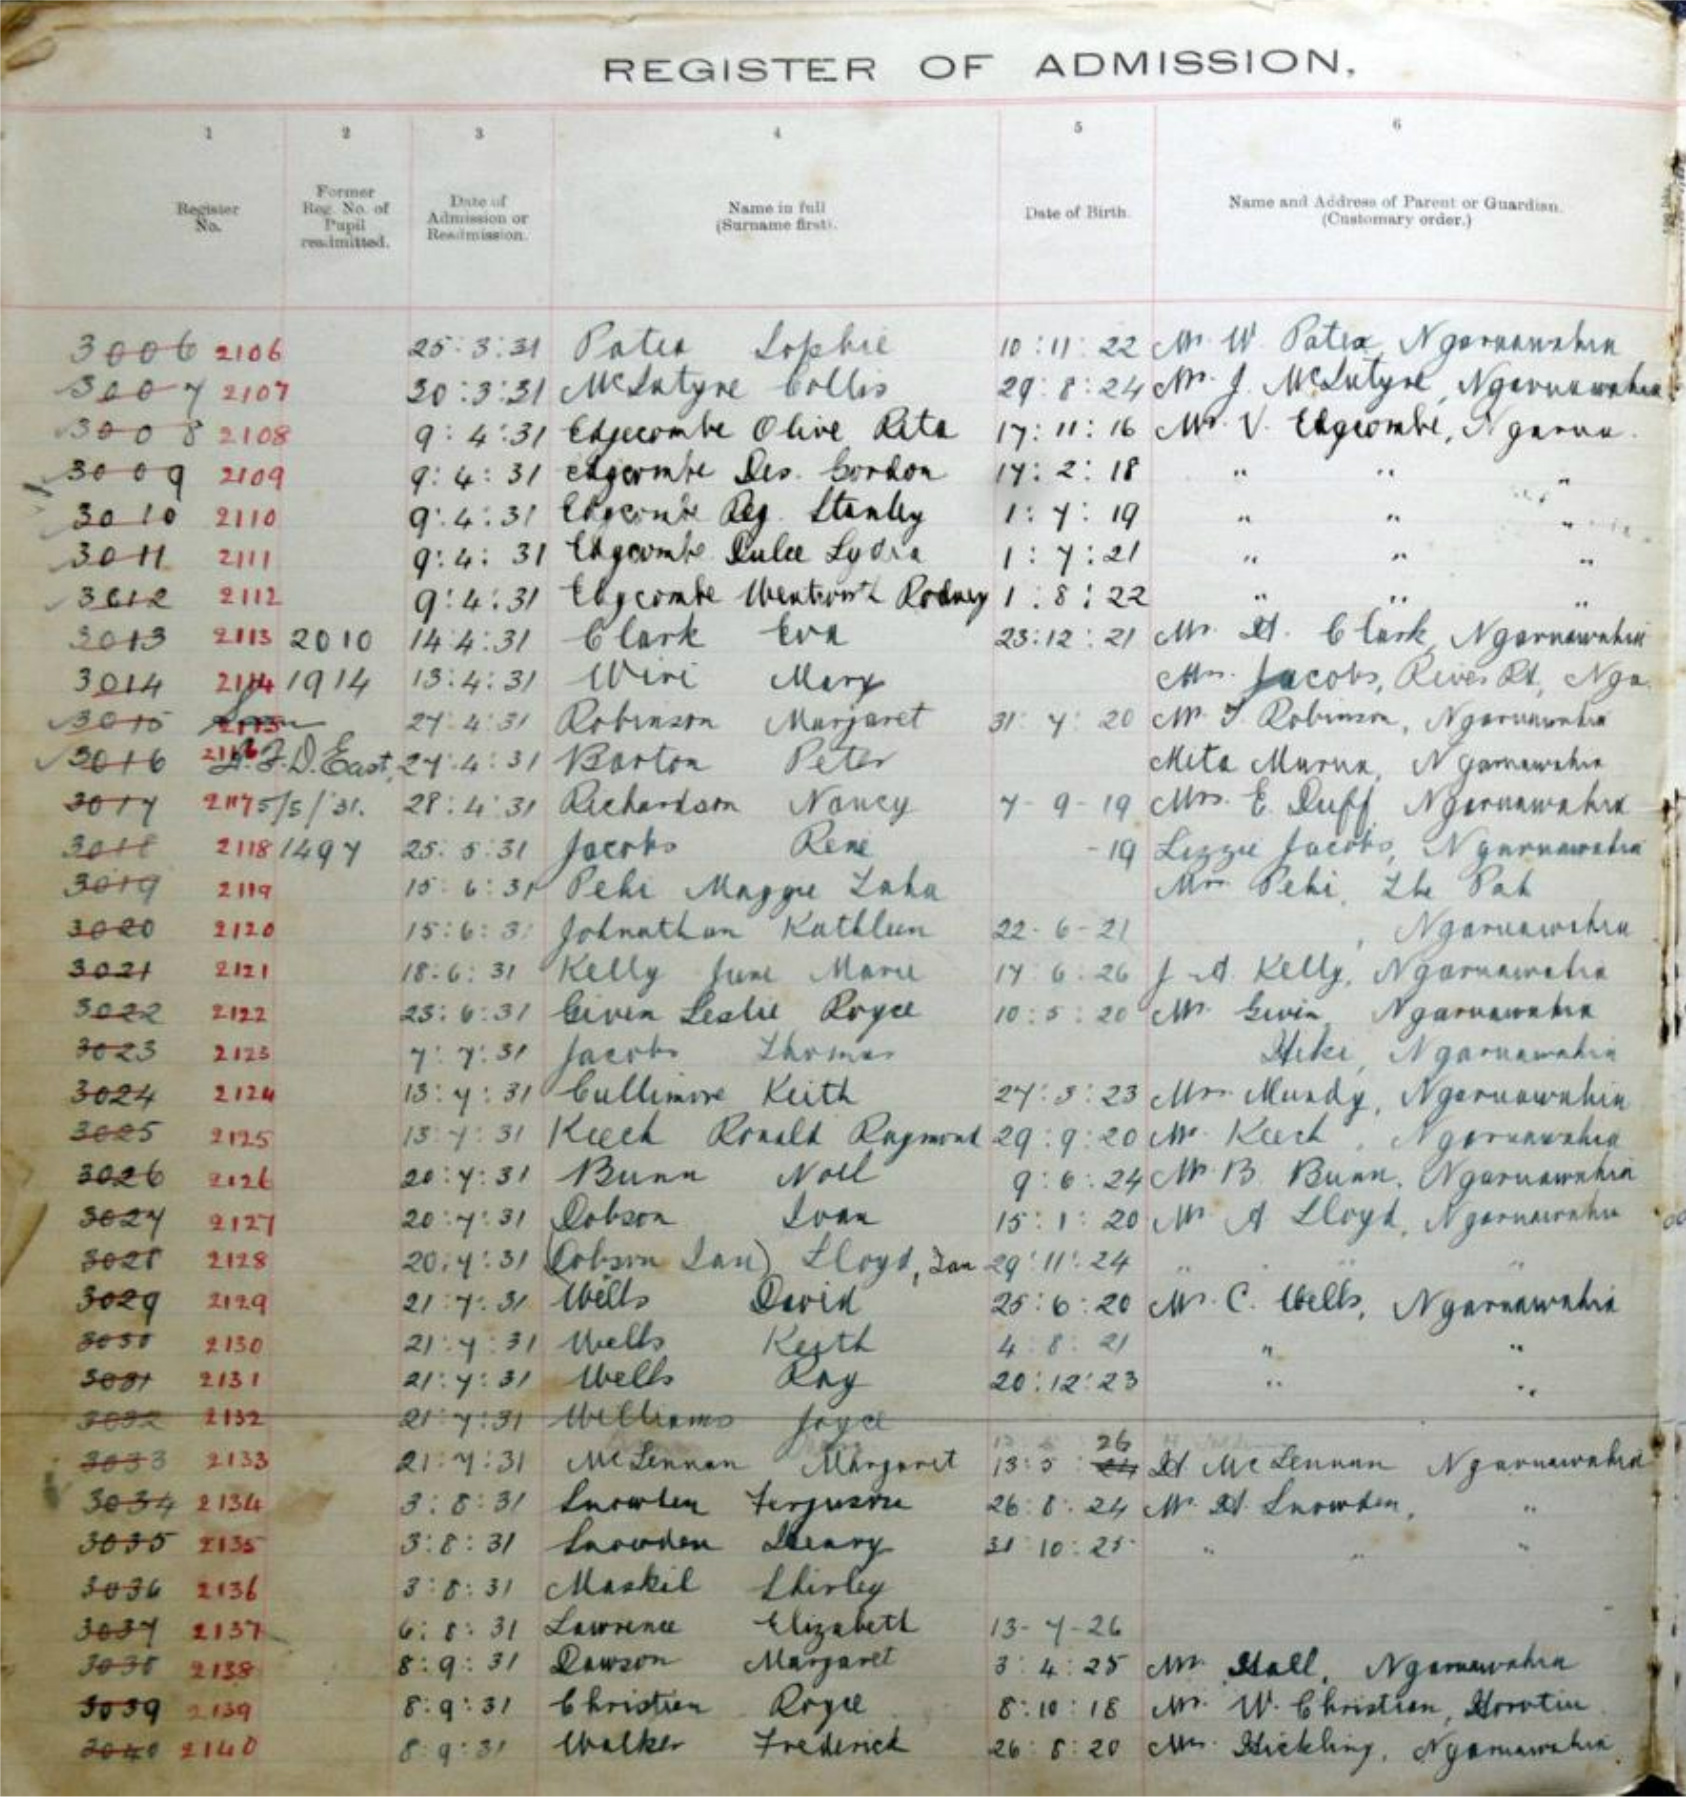 REGISTER OF ADMISSION.
1 2 3 4 5 6
Register No. Former Reg. No. of Pupil readmitted. Date of Admission or Readmission. Name in full (Surname first). Date of Birth. Name and Address of Parent or Guardian. (Customary order.)
3006 2106 25:3:31 Patea Sophie 10:11:22 Mr. W. Patea, Ngaruawahia
3007 2107 30:3:31 McIntyre Collis 29:8:24 Mr. J. McIntyre, Ngaruawahia
3008 2108 9:4:31 Edgecombe Olive Rita 17:11:16 Mr. V. Edgcombe, Ngarua.
3009 2109 9:4:31 Edgcombe Des. Gordon 17:2:18 " " "
3010 2110 9:4:31 Edgcombe Reg. Stanley 1:7:19 " " "
3011 2111 9:4:31 Edgcombe Dulce Lydia 1:7:21 " " "
3012 2112 9:4:31 Edgcombe Wentworth Rodney 1:8:22 " " "
3013 2113 2010 14:4:31 Clark Eva 23:12:21 Mr. H. Clark, Ngaruawahia
3014 2114 1914 13:4:31 Wiri Mary Mrs. Jacobs, River Rd, Nga.
3015 2115 27:4:31 Robinson Margaret 31:7:20 Mr. Robinson, Ngaruawahia
3016 2116 D. East, 27:4:31 Barton Peter Meta Murua, Ngaruawahia
3017 2117 5/5/31. 28:4:31 Richardson Nancy 7-9-19 Mrs. E. Duff Ngaruawahia
3018 2118 1497 25:5:31 Jacobs Rene -19 Lizzie Jacobs, Ngaruawahia
3019 2119 15:6:31 Pehi Maggie Taha Mrs Pehi, The Pah
3020 2120 15:6:31 Johnathan Kathleen 22-6-21 , Ngaruawahia
3021 2121 18:6:31 Kelly June Marie 17 6:26 J. A. Kelly, Ngaruawahia
3022 2122 23:6:31 Given Leslie Royce 10:5:20 Mr. Givin Ngaruawahia
3023 2123 7:7:31 Jacobs Thomas Heke, Ngaruawahia
3024 2124 13:7:31 Cullimore Keith 27:3:23 Mrs Mundy, Ngaruawahia
3025 2125 13:7:31 Keech Ronald Raymond 29:9:20 Mr. Keech, Ngaruawahia
3026 2126 20:7:31 Bunn Noel 9:6:24 Mr. B. Bunn, Ngaruawahia
3027 2127 20:7:31 Dobson Ivan 15:1:20 Mr. A Lloyd, Ngaruawahia
3028 2128 20:7:31 (Dobson Ian) Lloyd, Ian 29:11:24 " " "
3029 2129 21:7:31 Wells David 25:6:20 Mr. C. Wells, Ngaruawahia
3030 2130 21:7:31 Wells Keith 4:8:21 " "
3031 2131 21:7:31 Wells Ray 20:12:23 " "
3032 2132 21:7:31 Williams Joyce
3033 2133 21:7:31 McLennan Margaret 13:5:24 26 H McLennan Ngaruawahia
3034 2134 3:8:31 Snowden Ferguson 26:8:24 Mr. H. Snowden, "
3035 2135 3:8:31 Snowden Henry 31 10:25 " " "
3036 2136 3:8:31 Maskil Shirley
3037 2137 6:8:31 Lawrence Elizabeth 13-7-26
3038 2138 8:9:31 Dawson Margaret 3:4:25 Mr. Hall, Ngaruawahia
3039 2139 8:9:31 Christien Royce 8:10:18 Mr. W. Christien, Horotiu
3040 2140 8:9:31 Walker Frederick 26:8:20 Mrs. Hickling, Ngaruawahia